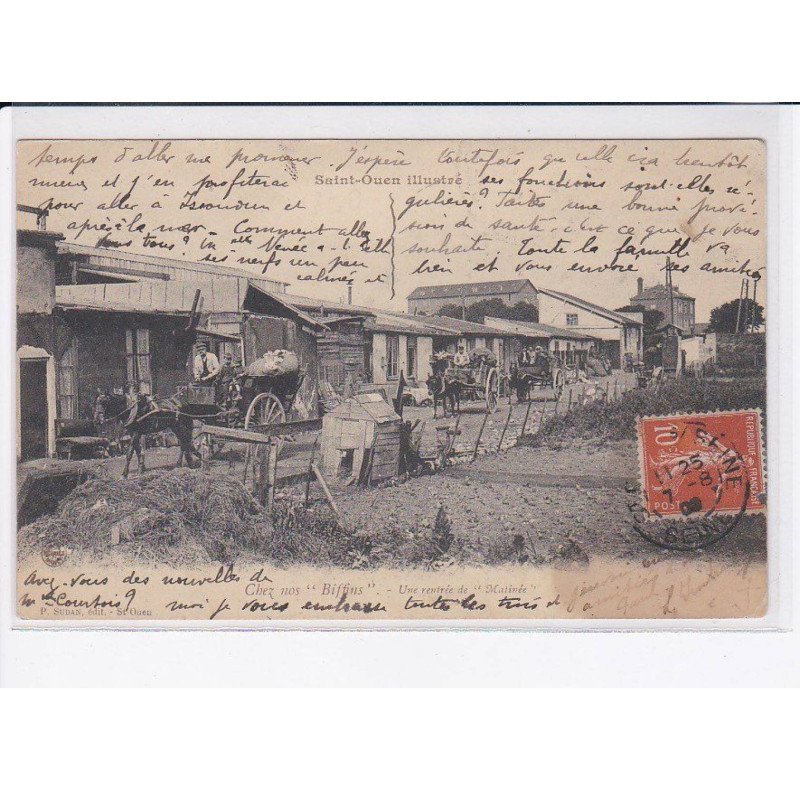 temps d'aller me promener. J'espère toutefois que cela ira bientôt
mieux et j'en profiterai
Saint-Ouen illustré
ses fonctions sont-elles ré-
pour aller à Issoudun et
gulières? Faites une bonne provi-
après à la mer. Comment allez
sion de santé. c'est ce que je vous
vous tous?
souhaite. Toute la famille va
ses nerfs un peu
calmés et
bien et vous envoie ses amitiés
10
POSTES
SEINE
11 25
7 - 8
Avez-vous des nouvelles de
Chez nos "Biffins". - Une rentrée de "Matinée"
Mme Courtois? moi je vous embrasse toutes les trois de
P. SUDAN, édit. - St-Ouen